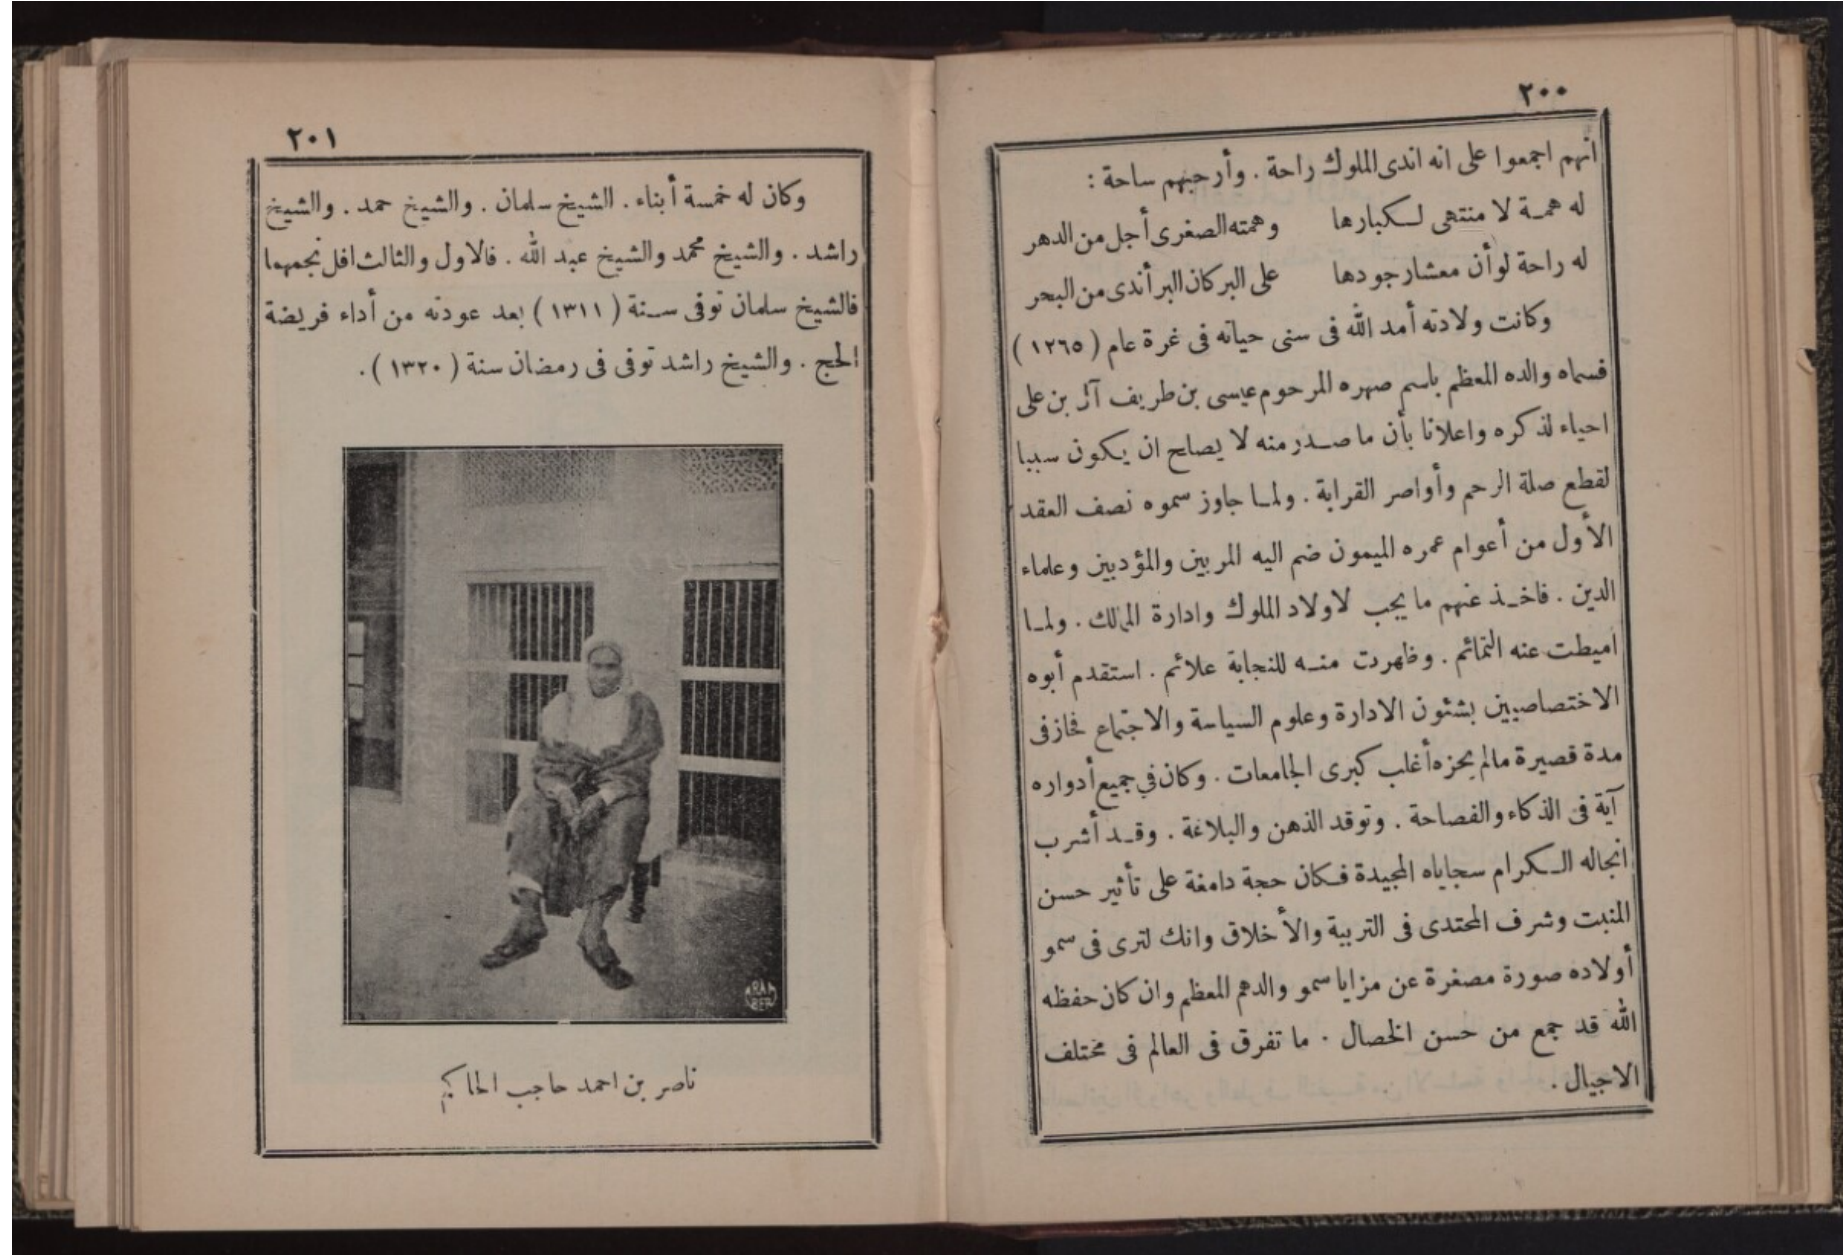 ٢٠٠
انهم اجمعوا على انه اندى الملوك راحة . وأرحبهم ساحة :
له همة لا منتهى لكبارها وهمته الصغرى أجل من الدهر
له راحة لو أن معشار جودها على البر كان البر أندى من البحر
وكانت ولادته أمد الله فى سنى حياته فى غرة عام ( ١٢٦٥ )
فسماه والده المعظم باسم صهره المرحوم عيسى بن طريف آل بن على
احياء لذكره واعلانا بأن ما صدر منه لا يصلح ان يكون سببا
لقطع صلة الرحم وأواصر القرابة . ولما جاوز سموه نصف العقد
الأول من أعوام عمره الميمون ضم اليه المربين والمؤدبين وعلماء
الدين . فاخذ عنهم ما يجب لاولاد الملوك وادارة الممالك . ولما
اميطت عنه التمائم . وظهرت منه للنجابة علائم . استقدم أبوه
الاختصاصيين بشئون الادارة وعلوم السياسة والاجتماع فحاز فى
مدة قصيرة مالم يحزه أغلب كبرى الجامعات . وكان في جميع أدواره
آية فى الذكاء والفصاحة . وتوقد الذهن والبلاغة . وقد أشرب
انجاله الكرام سجاياه المجيدة فكان حجة دامغة على تأثير حسن
المنبت وشرف المحتدى فى التربية والأخلاق وانك لترى فى سمو
أولاده صورة مصغرة عن مزايا سمو والدهم المعظم وان كان حفظه
الله قد جمع من حسن الخصال . ما تفرق فى العالم فى مختلف
الاجيال .
٢٠١
وكان له خمسة أبناء . الشيخ سلمان . والشيخ حمد . والشيخ
راشد . والشيخ محمد والشيخ عبد الله . فالاول والثالث افل نجمهما
فالشيخ سلمان توفى سنة ( ١٣١١ ) بعد عودته من أداء فريضة
الحج . والشيخ راشد توفى فى رمضان سنة ( ١٣٢٠ ) .
ناصر بن احمد حاجب الحاكم